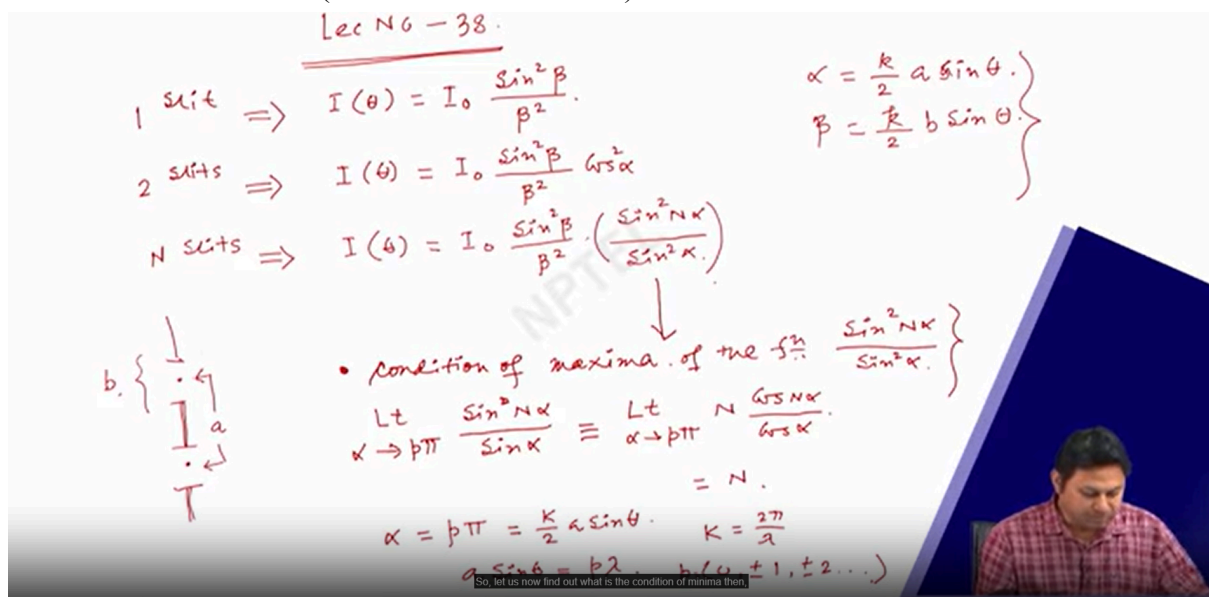 Lec No – 38.
1 slit ⇒ I(θ) = I₀ sin²β / β².
2 slits ⇒ I(θ) = I₀ sin²β / β² cos²α
N slits ⇒ I(θ) = I₀ sin²β / β² · (sin²Nα / sin²α.)
α = k/2 a sinθ.
β = k/2 b sinθ.
NPTEL
b. { a
• condition of maxima. of the fn. sin²Nα / sin²α. }
Lt α→pπ sin Nα / sin α ≡ Lt α→pπ N cos Nα / cos α.
= N.
α = pπ = k/2 a sinθ. K = 2π/λ
a sinθ = pλ. ± 1, ± 2 ...)
So, let us now find out what is the condition of minima then,